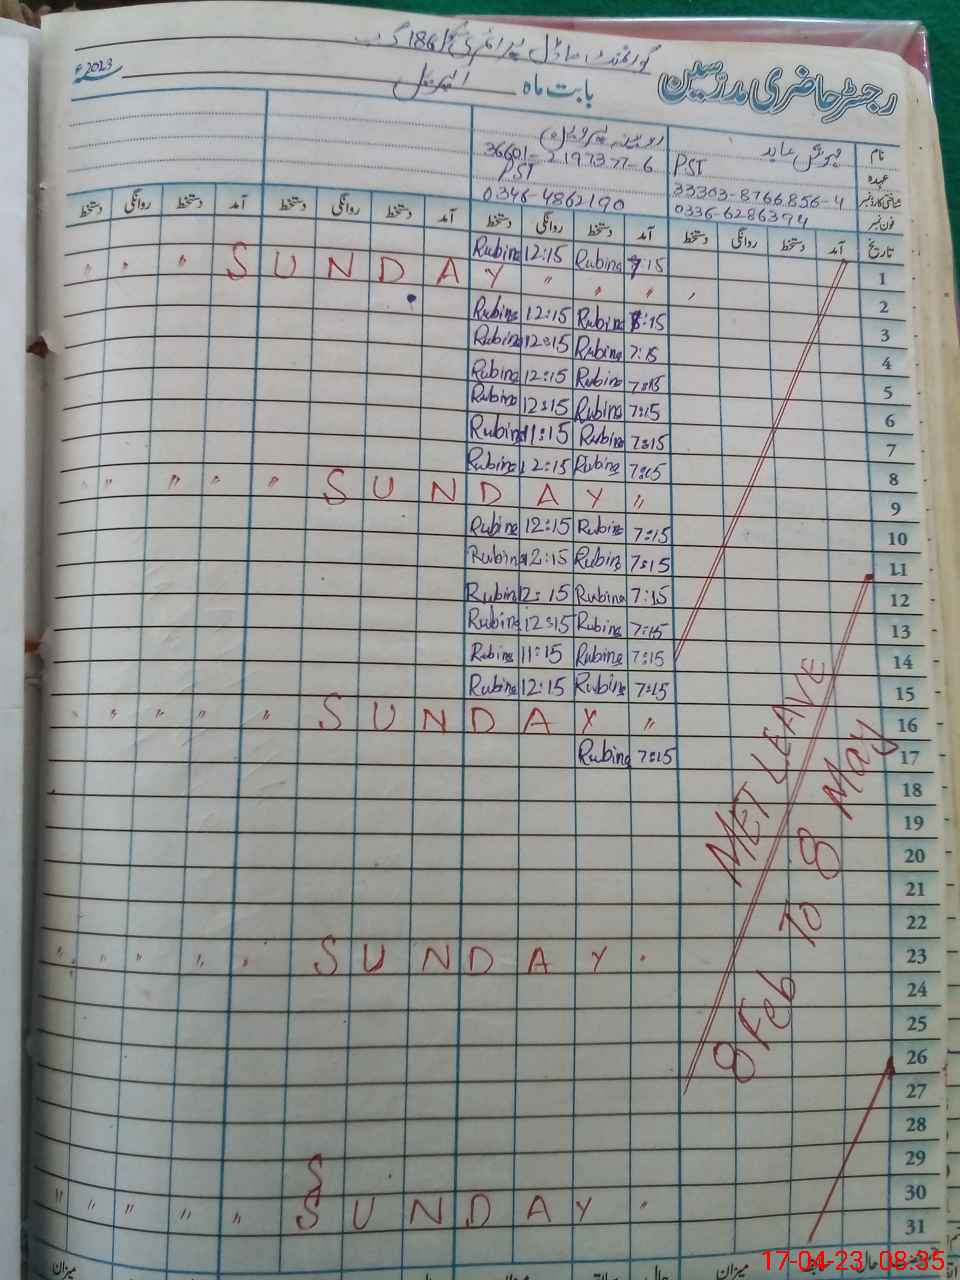 رجسٹر حاضری مدرسین
گورنمنٹ ماڈل پرائمری
بابت ماہ اپریل 2023ء
نام
عہدہ PST PST
شناختی کارڈ نمبر 33303-8766856-4 36601-2197377-6
فون نمبر 0336-6286394 0346-4862190
تاریخ آمد دستخط روانگی دستخط آمد دستخط روانگی دستخط آمد دستخط روانگی دستخط آمد دستخط روانگی دستخط
1 7:15 Rubina 12:15 Rubina
2 SUNDAY
3 Rubina 12:15 Rubina
4 7:15 Rubina 12:15 Rubina
5 7:15 Rubina 12:15 Rubina
6 7:15 Rubina 12:15 Rubina
7 7:15 Rubina 11:15 Rubina
8 7:15 Rubina 12:15 Rubina
9 SUNDAY
10 7:15 Rubina 12:15 Rubina
11 7:15 Rubina 12:15 Rubina
12 7:15 Rubina 12:15 Rubina
13 7:15 Rubina 12:15 Rubina
14 7:15 Rubina 11:15 Rubina
15 7:15 Rubina 12:15 Rubina
16 SUNDAY
17 7:15 Rubina
18
19
20
21
22
23 SUNDAY
24
25
26
27
28
29
30 S
31 SUNDAY
MET LEAVE
8 Feb To 8 May
میزان
میزان
17-04-23 08:35